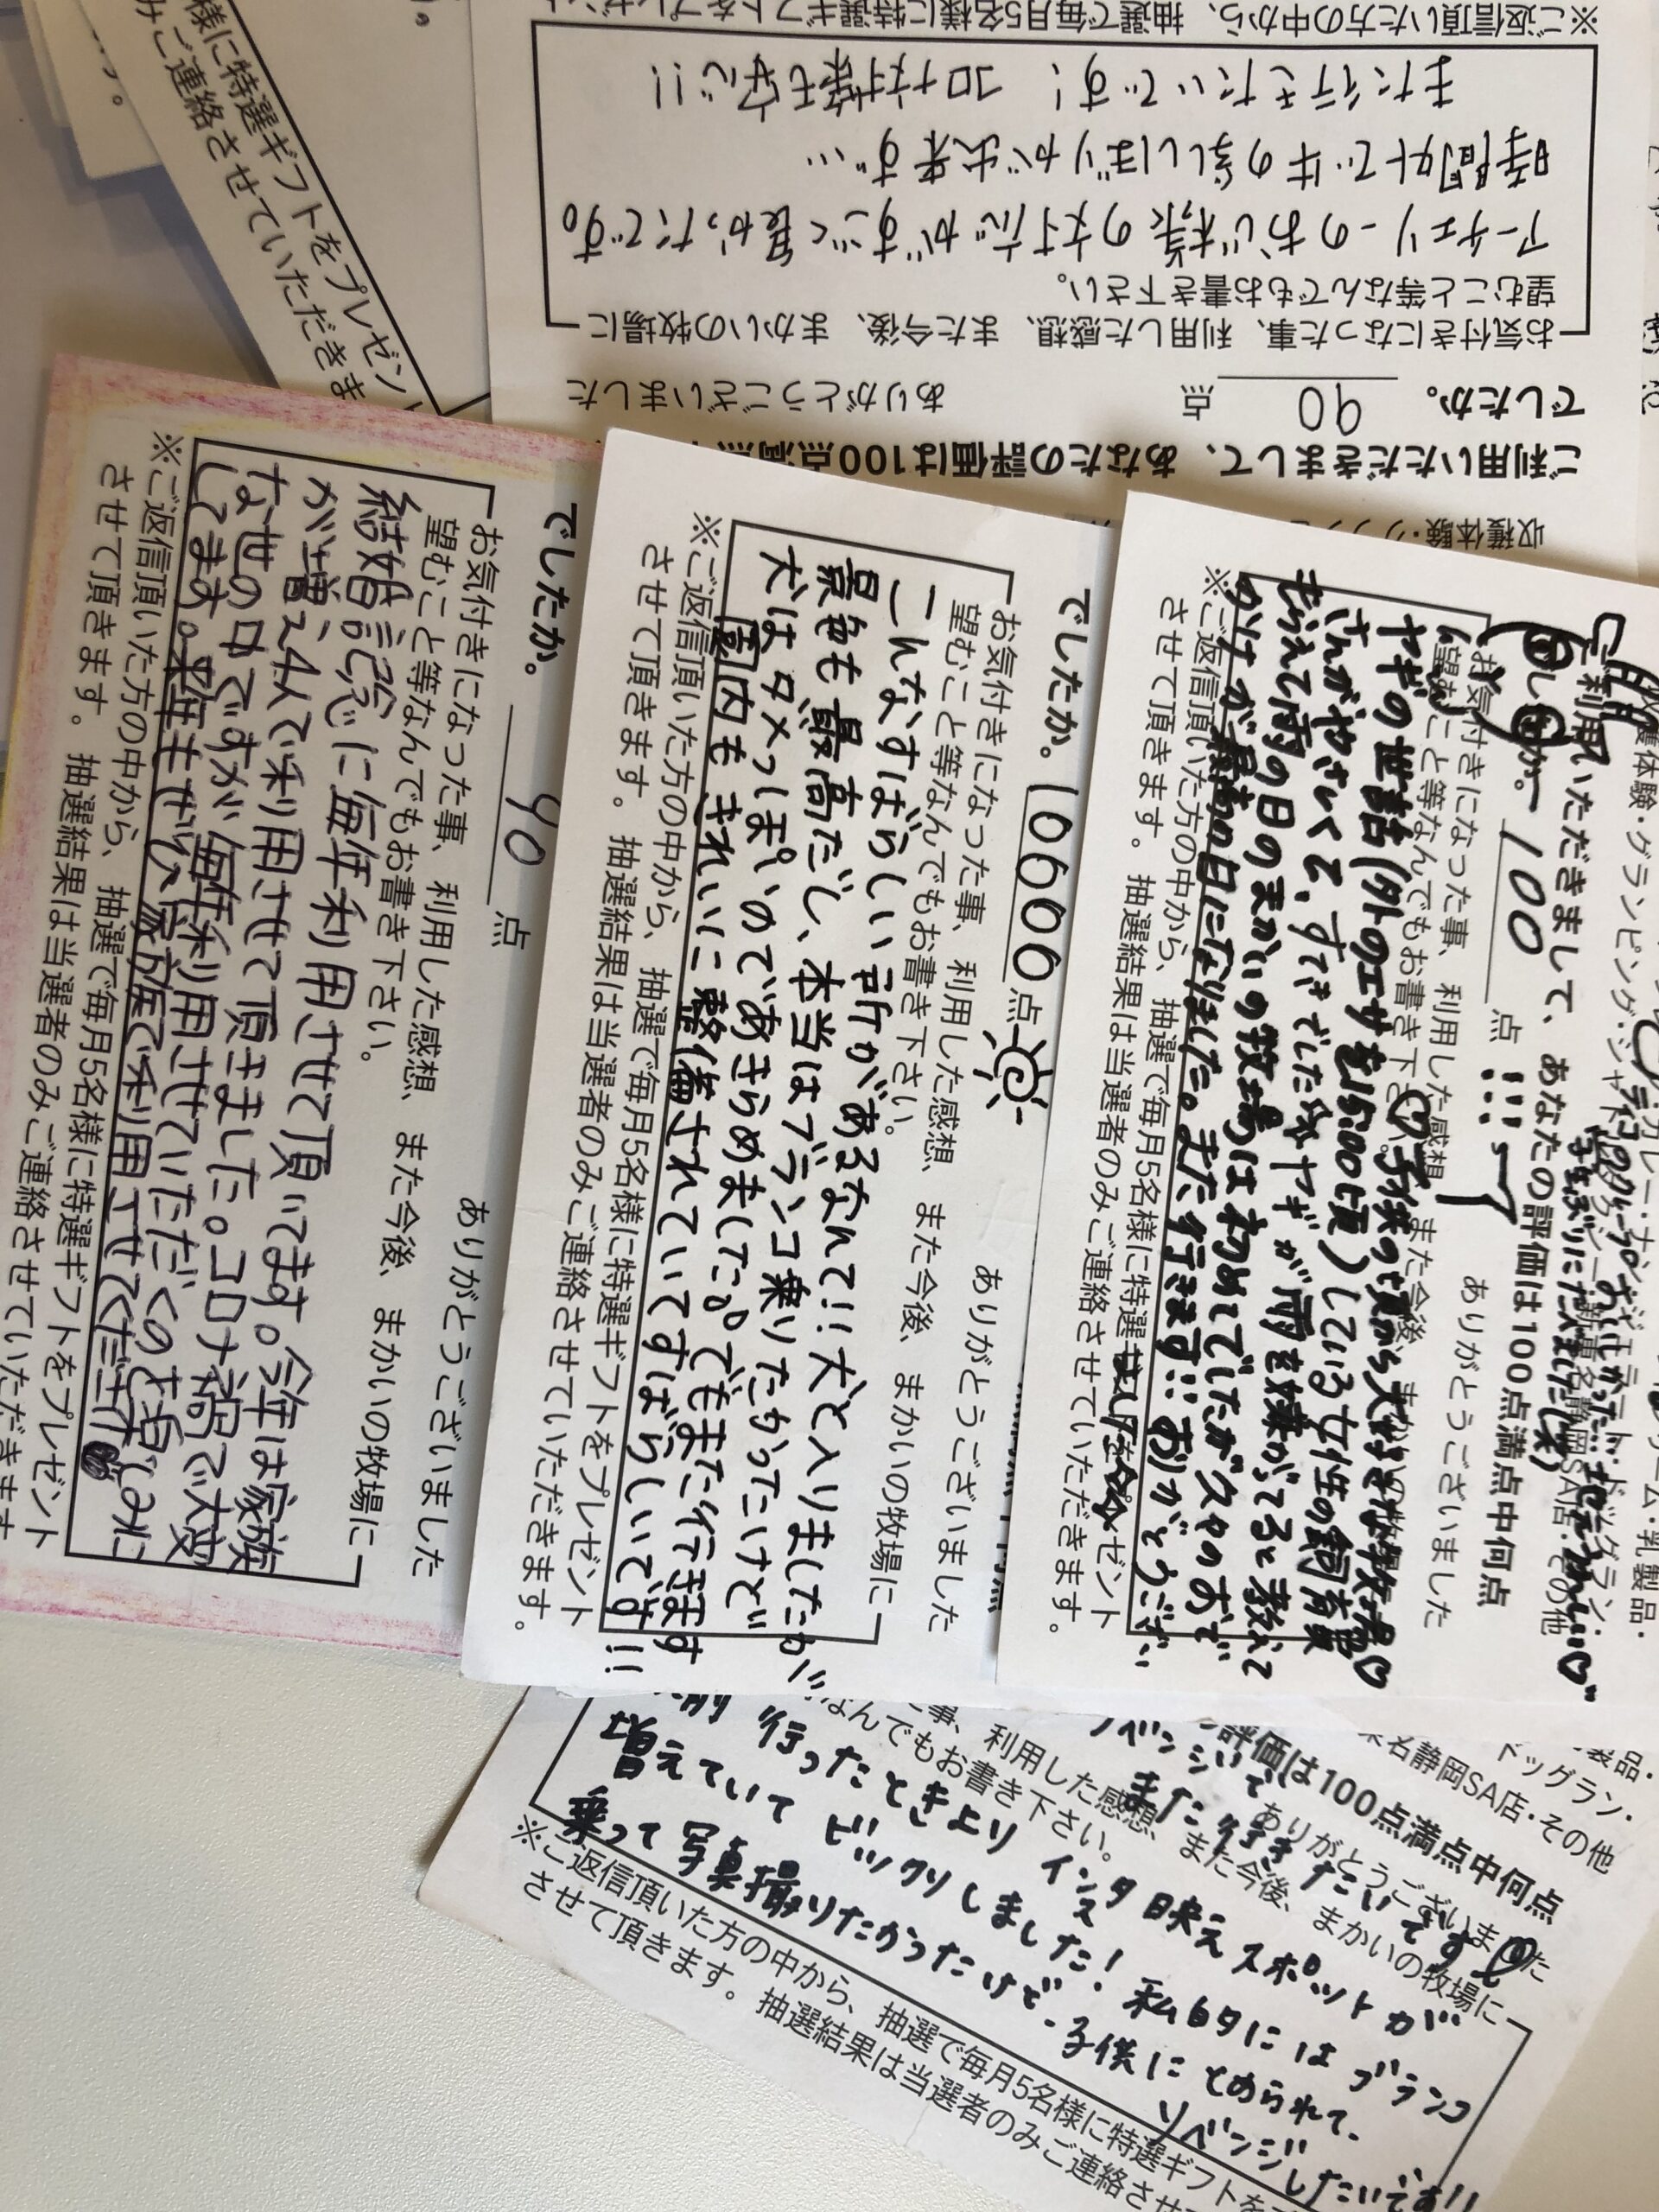 様に特選ギフトをプレゼント
ご連絡させていただきま
※ご返信頂いた方の中から、抽選で毎月5名様に特選ギフトをプレゼント
収穫体験・
ご利用いただきまして、あなたの評価は100点満
でしたか。 90 点 ありがとうございました
お気付きになった事、利用した感想、また今後、まかいの牧場に
望むこと等なんでもお書き下さい。
アーチェリーのおじ様の対応がすごく良かったです。
時間外で牛の乳しぼりが出来ず…
また行きたいです! コロナ対策も安心!!
でしたか。 90 点 ありがとうございました
お気付きになった事、利用した感想、また今後、まかいの牧場に
望むこと等なんでもお書き下さい。
結婚記念に毎年利用させて頂いてます。今年は家族
が増え4人で利用させて頂きました。コロナ禍で大変
な世の中ですが毎年利用させていただくのを楽しみに
してます。来年もぜひ家族で利用させてください
※ご返信頂いた方の中から、抽選で毎月5名様に特選ギフトをプレゼント
させて頂きます。抽選結果は当選者のみご連絡させていただきます
でしたか。 10000 点 ありがとうございました
お気付きになった事、利用した感想、また今後、まかいの牧場に
望むこと等なんでもお書き下さい。
こんなすばらしい所があるなんて!!犬と入りましたが
景色も最高だし、本当はブランコ乗りたかったけど
犬はダメっぽいのであきらめました。でもまた行きます
園内もきれいに整備されていてすばらしいです!!
※ご返信頂いた方の中から、抽選で毎月5名様に特選ギフトをプレゼント
させて頂きます。抽選結果は当選者のみご連絡させていただきます。
穫体験・グランピング・
新東名静岡SA店・その他
ご利用いただきまして、あなたの評価は100点満点中何点
でしたか。 100 点!!! ありがとうございました
お気付きになった事、利用した感想、また今後、まかいの牧場に
望むこと等なんでもお書き下さい。
子供の頃から大好きな牧場♡
ヤギの世話(外のエサを15:00頃)している女性の飼育員
さんがやさしくて、すてきでした。ヤギが雨を嫌がってると教えて
もらえて雨の日のまかいの牧場は初めてでしたが久々のおで
かけが最高の日になりました。また行きます!!ありがとうござい
※ご返信頂いた方の中から、抽選で毎月5名様に特選
させて頂きます。抽選結果は当選者のみご連絡させていただきます。
製品・
ドッグラン・
東名静岡SA店・その他
評価は100点満点中何点
ありがとうございました
リベンジで
また行きたいです
事、利用した感想、また今後、まかいの牧場に
なんでもお書き下さい。
前行ったときより インスタ映えスポットが
増えていてビックリしました!私的にはブランコ
乗って写真撮りたかったけど、子供にとめられて、
リベンジしたいです!!
※ご返信頂いた方の中から、抽選で毎月5名様に特選ギフトを
させて頂きます。抽選結果は当選者のみご連絡させて